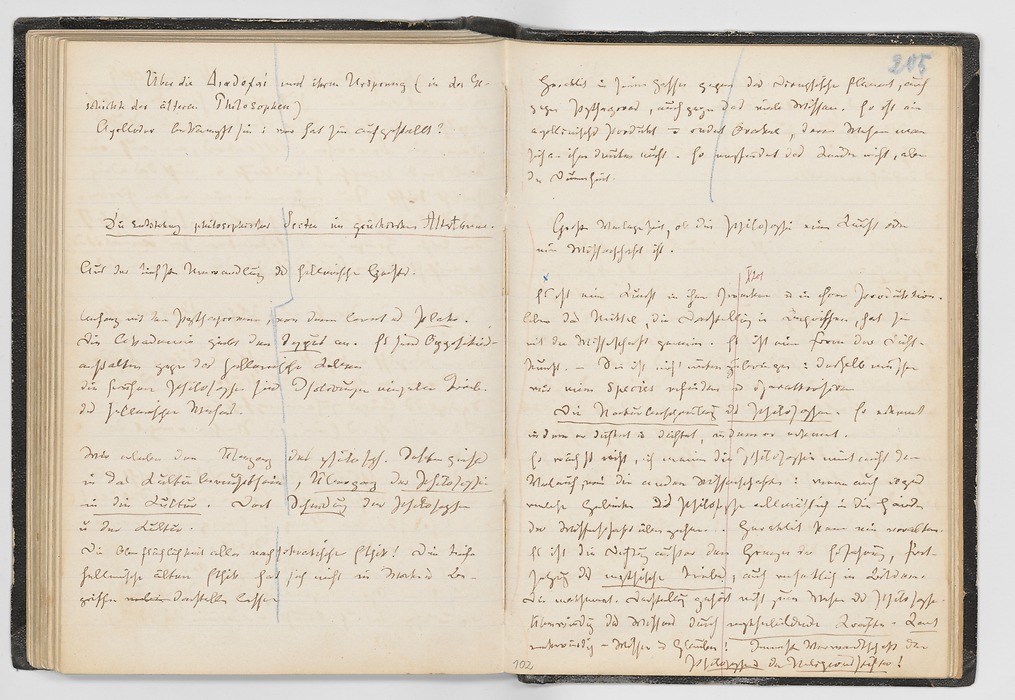 Über die Διαδοχαί und ihren Ursprung (in der Ge-
schichte der älteren Philosophen)
Apollodor bekämpft sie: wer hat sie aufgestellt?
Die Entstehung philosophischer Secten im griechischen Alterthum.
Aus der tiefsten Umwandlung des hellenischen Geistes.
Anfang mit den Pythagoreern, von denen lernt es Plato.
Die Academie giebt den Typus an. Es sind Oppositions-
anstalten gegen das hellenische Leben
die früheren Philosophen sind Isolirungen einzelner Triebe
des hellenischen Wesens.
Wir erleben den Übergang des philosoph. Sektengeistes
in das Culturbewußtsein, Übergang der Philosophie
in die Cultur. Dort Scheidung der Philosophie
u der Cultur.
Die Oberflächlichkeit aller nachsokratischen Ethik! Die tiefe
hellenische ältere Ethik hat sich nicht in Worten u Be-
griffen darstellen lassen
205
Heraclit in seinem Hasse gegen das dionysische Element, auch
gegen Pythagoras, auch gegen das viele Wissen. Er ist ein
apollinisches Produkt u redet Orakel, deren Wesen man
sich u ihm deuten muß. Er empfindet das Leiden nicht, aber
die Dummheit.
Große Verlegenheit, ob die Philosophie eine Kunst oder
eine Wissenschaft ist.
Es ist eine Kunst in ihren Zwecken u in ihrer Produktion.
Aber das Mittel, die Darstellung in Begriffen, hat sie
mit der Wissenschaft gemein. Es ist eine Form der Dicht-
kunst. – Sie ist nicht unterzubringen: deshalb müssen
wir eine Species erfinden u charakterisiren
Die Naturbeschreibung des Philosophen. Er erkennt
indem er dichtet u dichtet, indem er erkennt.
Er wächst nicht, ich meine die Philosophie nimmt nicht den
Verlauf, wie die andern Wissenschaften: wenn auch irgend
welche Gebiete des Philosophen allmählich in die Hände
der Wissenschaft übergehen. Heraklit kann nie veralten.
Es ist die Dichtung außer den Grenzen der Erfahrung, Fort-
setzung des mythischen Triebes, auch wesentlich in Bildern.
Die mathemat. Darstellung gehört nicht zum Wesen des Philosophen.
Überwindung des Wissens durch mythenbildende Kräfte. Kant
merkwürdig – Wissen u Glauben! Innerste Verwandtschaft der
Philosophen u der Religionsstifter!
102